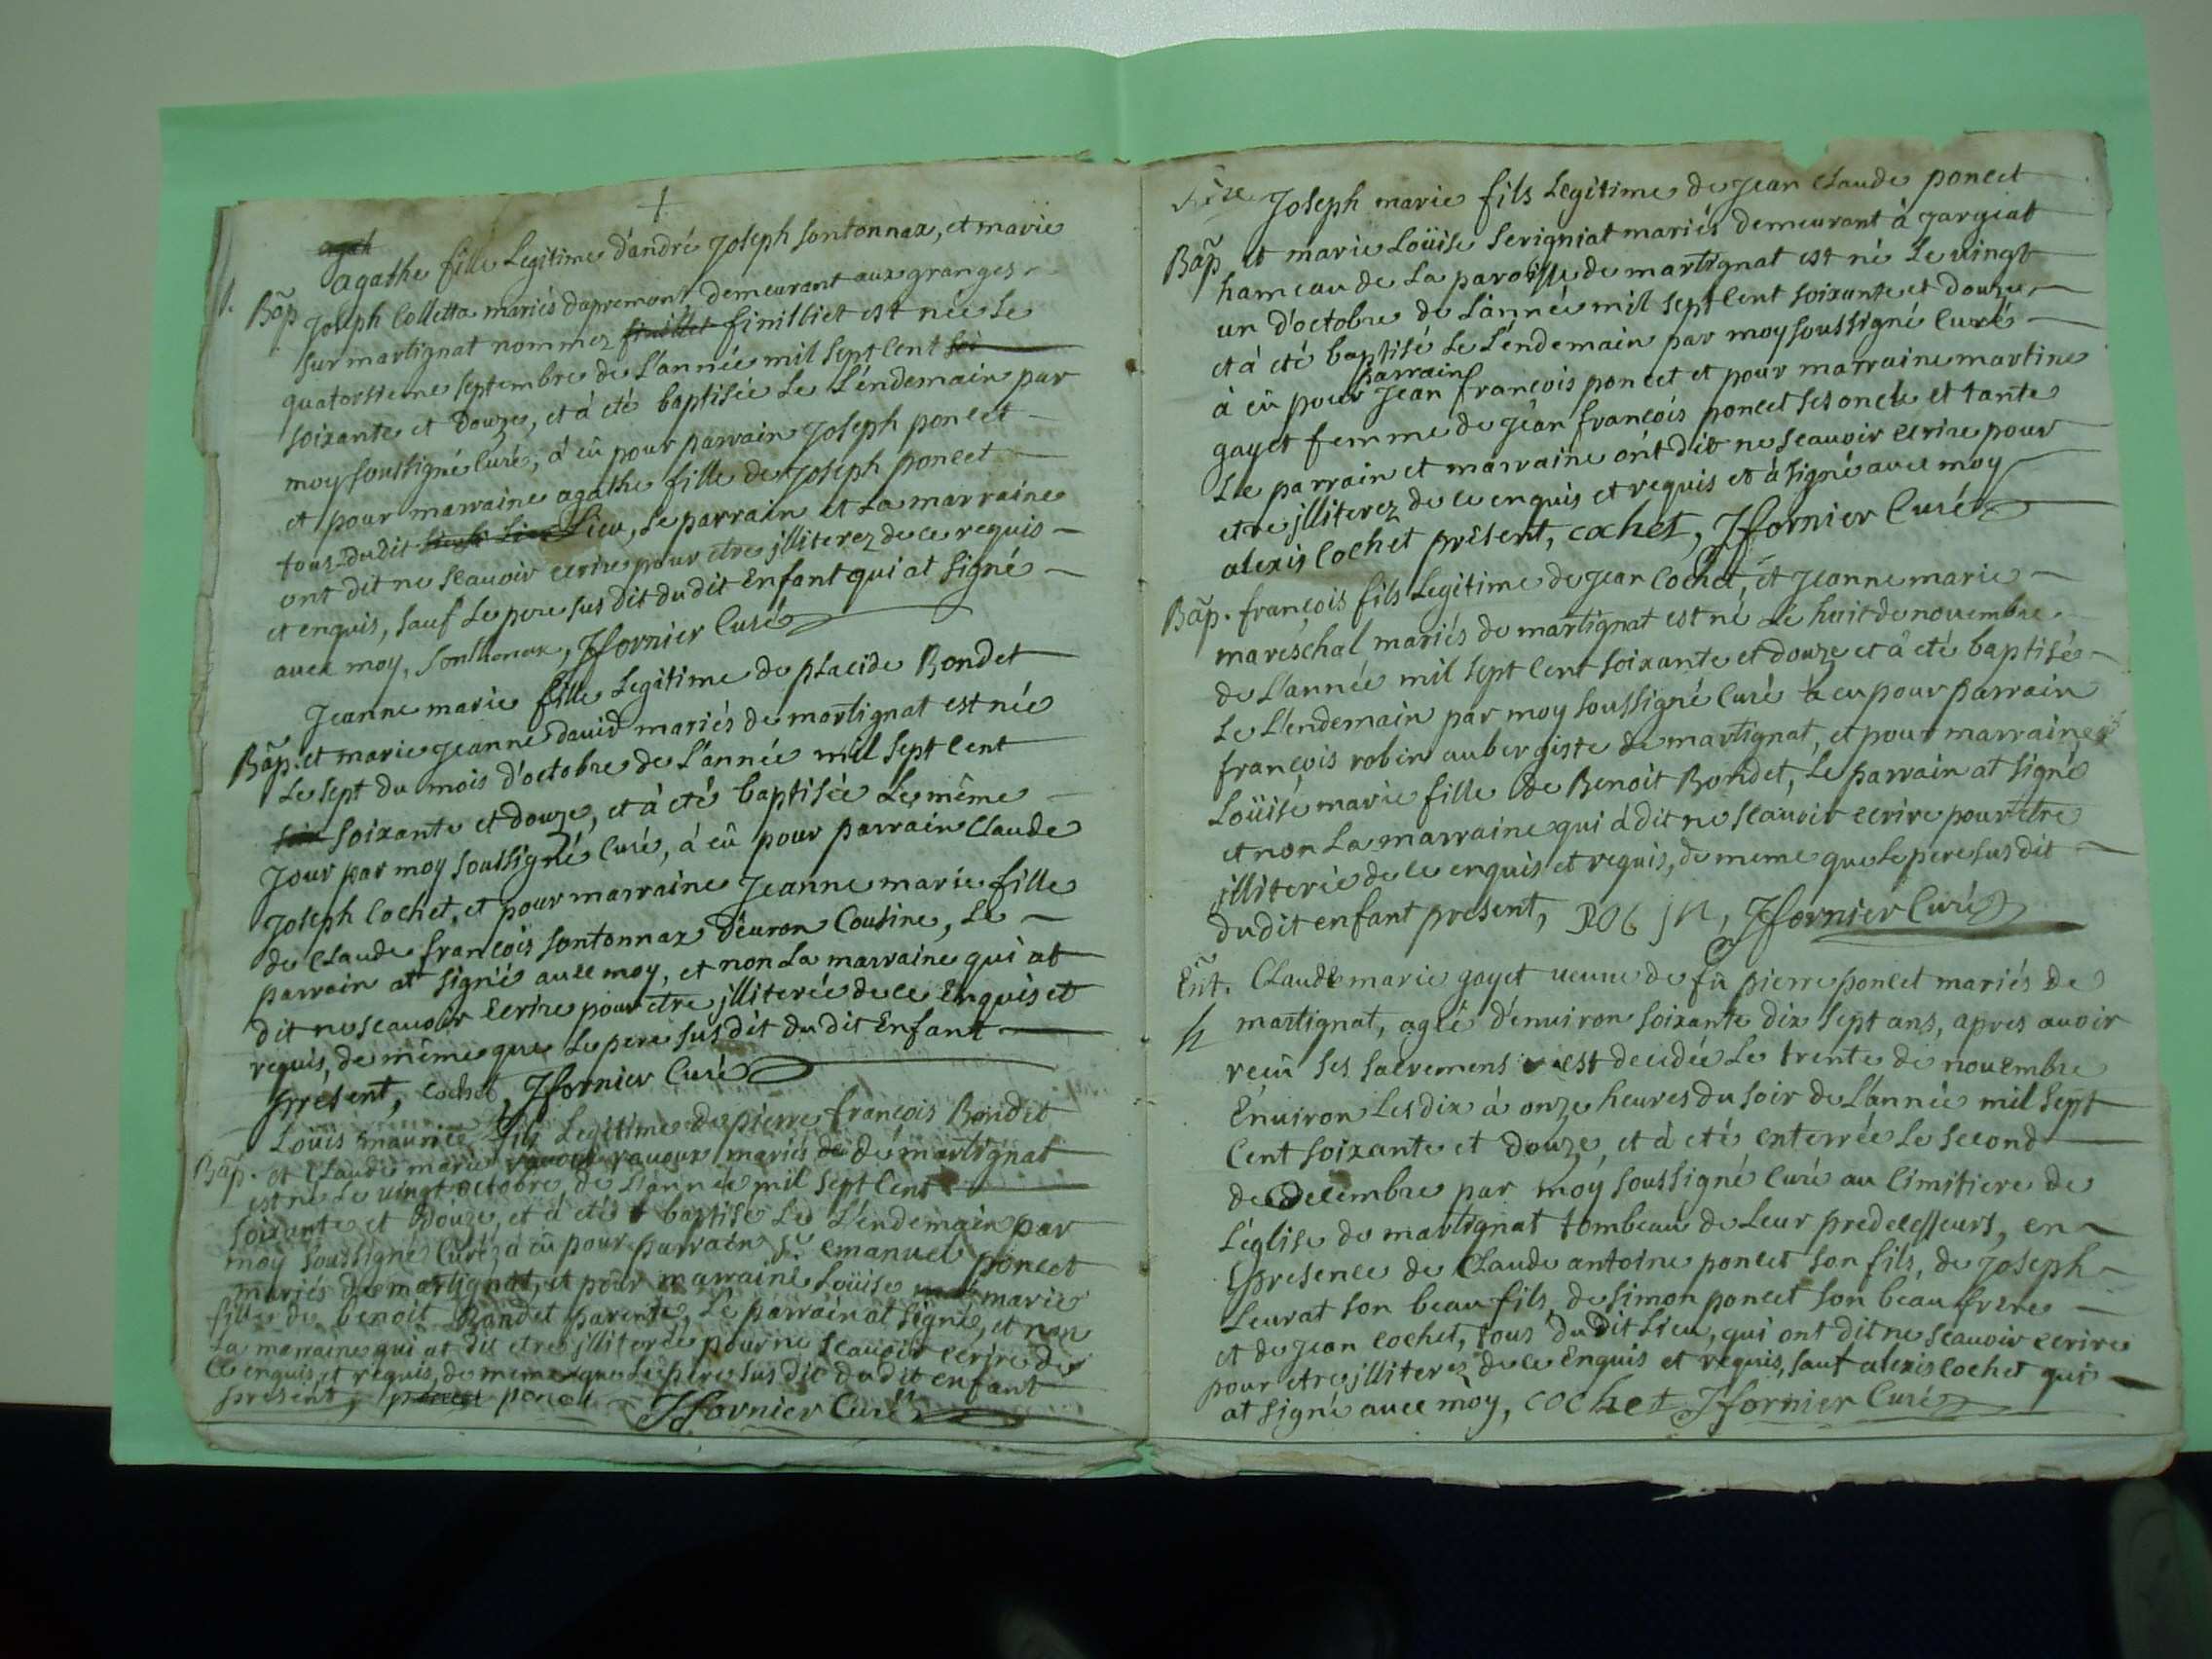 agat
agathe fille Legitime d'andré Joseph sontonnax, et marie
Bãp Joseph Colletta mariés d'apremont, demeurant aux granges
sur martignat nommez finillet finilliet est née Le
quatorsieme septembre de L'année mil sept Cent soi
soixante et Douze, et á eté baptisée Le L'éndemain par
moy soussigné Curé, á eû pour parrain Joseph poncet
et pour marraine agathe fille de Joseph poncet
tous Dudit Lieu, Le parrain et La marraine
ont dit ne scauoir ecrire pour etre jlliterez de ce requis
et enquis, sauf Le pere susdit dudit Enfant qui at signé
auec moy, sontonnax, Jfornier Curé
Jeanne marie fille Legitime de placide Bondet
Bãp. et marie Jeanne dauid mariés de martignat est née
Le sept du mois d'octobre de L'année mil sept Cent
soix soixante et douze, et á eté baptisée Le même
Jour par moy soussigné Curé, á eû pour parrain Claude
Joseph Cochet, et pour marraine Jeanne marie fille
de Claude françois sontonnax d'euron Cousine, Le
parrain at signé auec moy, et non La marraine qui at
dit ne scauoir Ecrire pour etre jlliterée de ce Enquis et
requis, de même que Le pere susdit dudit Enfant
présent, cochet, Jfornier Curé
Louis maurice fils Legitime de pierre françois Bondet
Bãp. et Claude marie rauoux mariés de de martignat
est né Le uingt octobre de L'année mil sept Cent
soixante et Douze, et á eté baptisé Le L'endemain par
moy soussigné Curé, á eû pour parrain Sr. emanuel poncet
mariés de martignat, et pour marraine Loüise marie
fille de benoit Bondet parente, Le parrain at signé, et non
La marraine qui at dit etre jlliterée pour ne scauoir ecrire de
Ce enquis et requis, de meme que Le pere susdit dudit enfant
present, poncet Jfornier Curé
Joseph marie fils Legitime de Jean Claude poncet
Bãp et marie Loüise serigniat mariés demeurant à gargiat
hameau de La paroisse de martignat est né Le uingt
un d'octobre de L'année mil sept Cent soixante et douze,
et á eté baptisé Le L'éndemain par moy soussigné Curé
parrain
á eû pour Jean françois poncet et pour marraine martine
gayet femme de Jean françois poncet ses oncle et tante
Le parrain et marraine ónt dit ne scauoir ecrire pour
etre jlliterez de ce enquis et requis et á signé auec moy
alexis Cochet présent, cochet, Jfornier Curé
Bãp. françois fils Legitime de Jean Cochet, et Jeanne marie
mareschal mariés de martignat est né Le huit de nouembre
de L'année mil sept Cent soixante et douze et á eté baptisé
Le L'endemain par moy soussigné Curé á eu pour parrain
françois robin aubergiste de martignat, et pour marraine
Loüise marie fille de Benoit Bondet, Le parrain at signé
et non La marraine qui á dit ne scauoir ecrire pour etre
jlliterée de ce enquis et requis, de meme que Le pere susdit
dudit enfant present, robin, Jfornier Curé
Ent. Claude marie gayet ueuue de fû pierre poncet mariés de
martignat, agée d'enuiron soixante dix sept ans, apres auoir
recû ses sacremens est decedée Le trente de nouembre
Enuiron Les dix á onze heures du soir de L'année mil sept
Cent soixante et Douze, et á eté enterrée Le second
de Decembre par moy soussigné Curé au Cimitiere de
L'église de martignat tombeau de Leur predecesseurs, en
presence de Claude antoine poncet son fils, de Joseph
Leurat son beau fils, de simon poncet son beau frere
et de Jean cochet, tous dudit Lieu, qui ont dit ne scauoir ecrire
pour etre jlliterez de ce Enquis et requis, sauf alexis Cochet qui
at signé auec moy, cochet Jfornier Curé